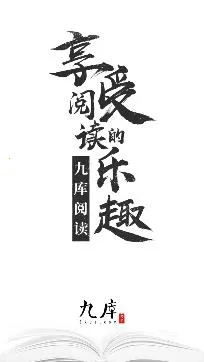 享受
阅读的
乐趣
九库阅读
九库